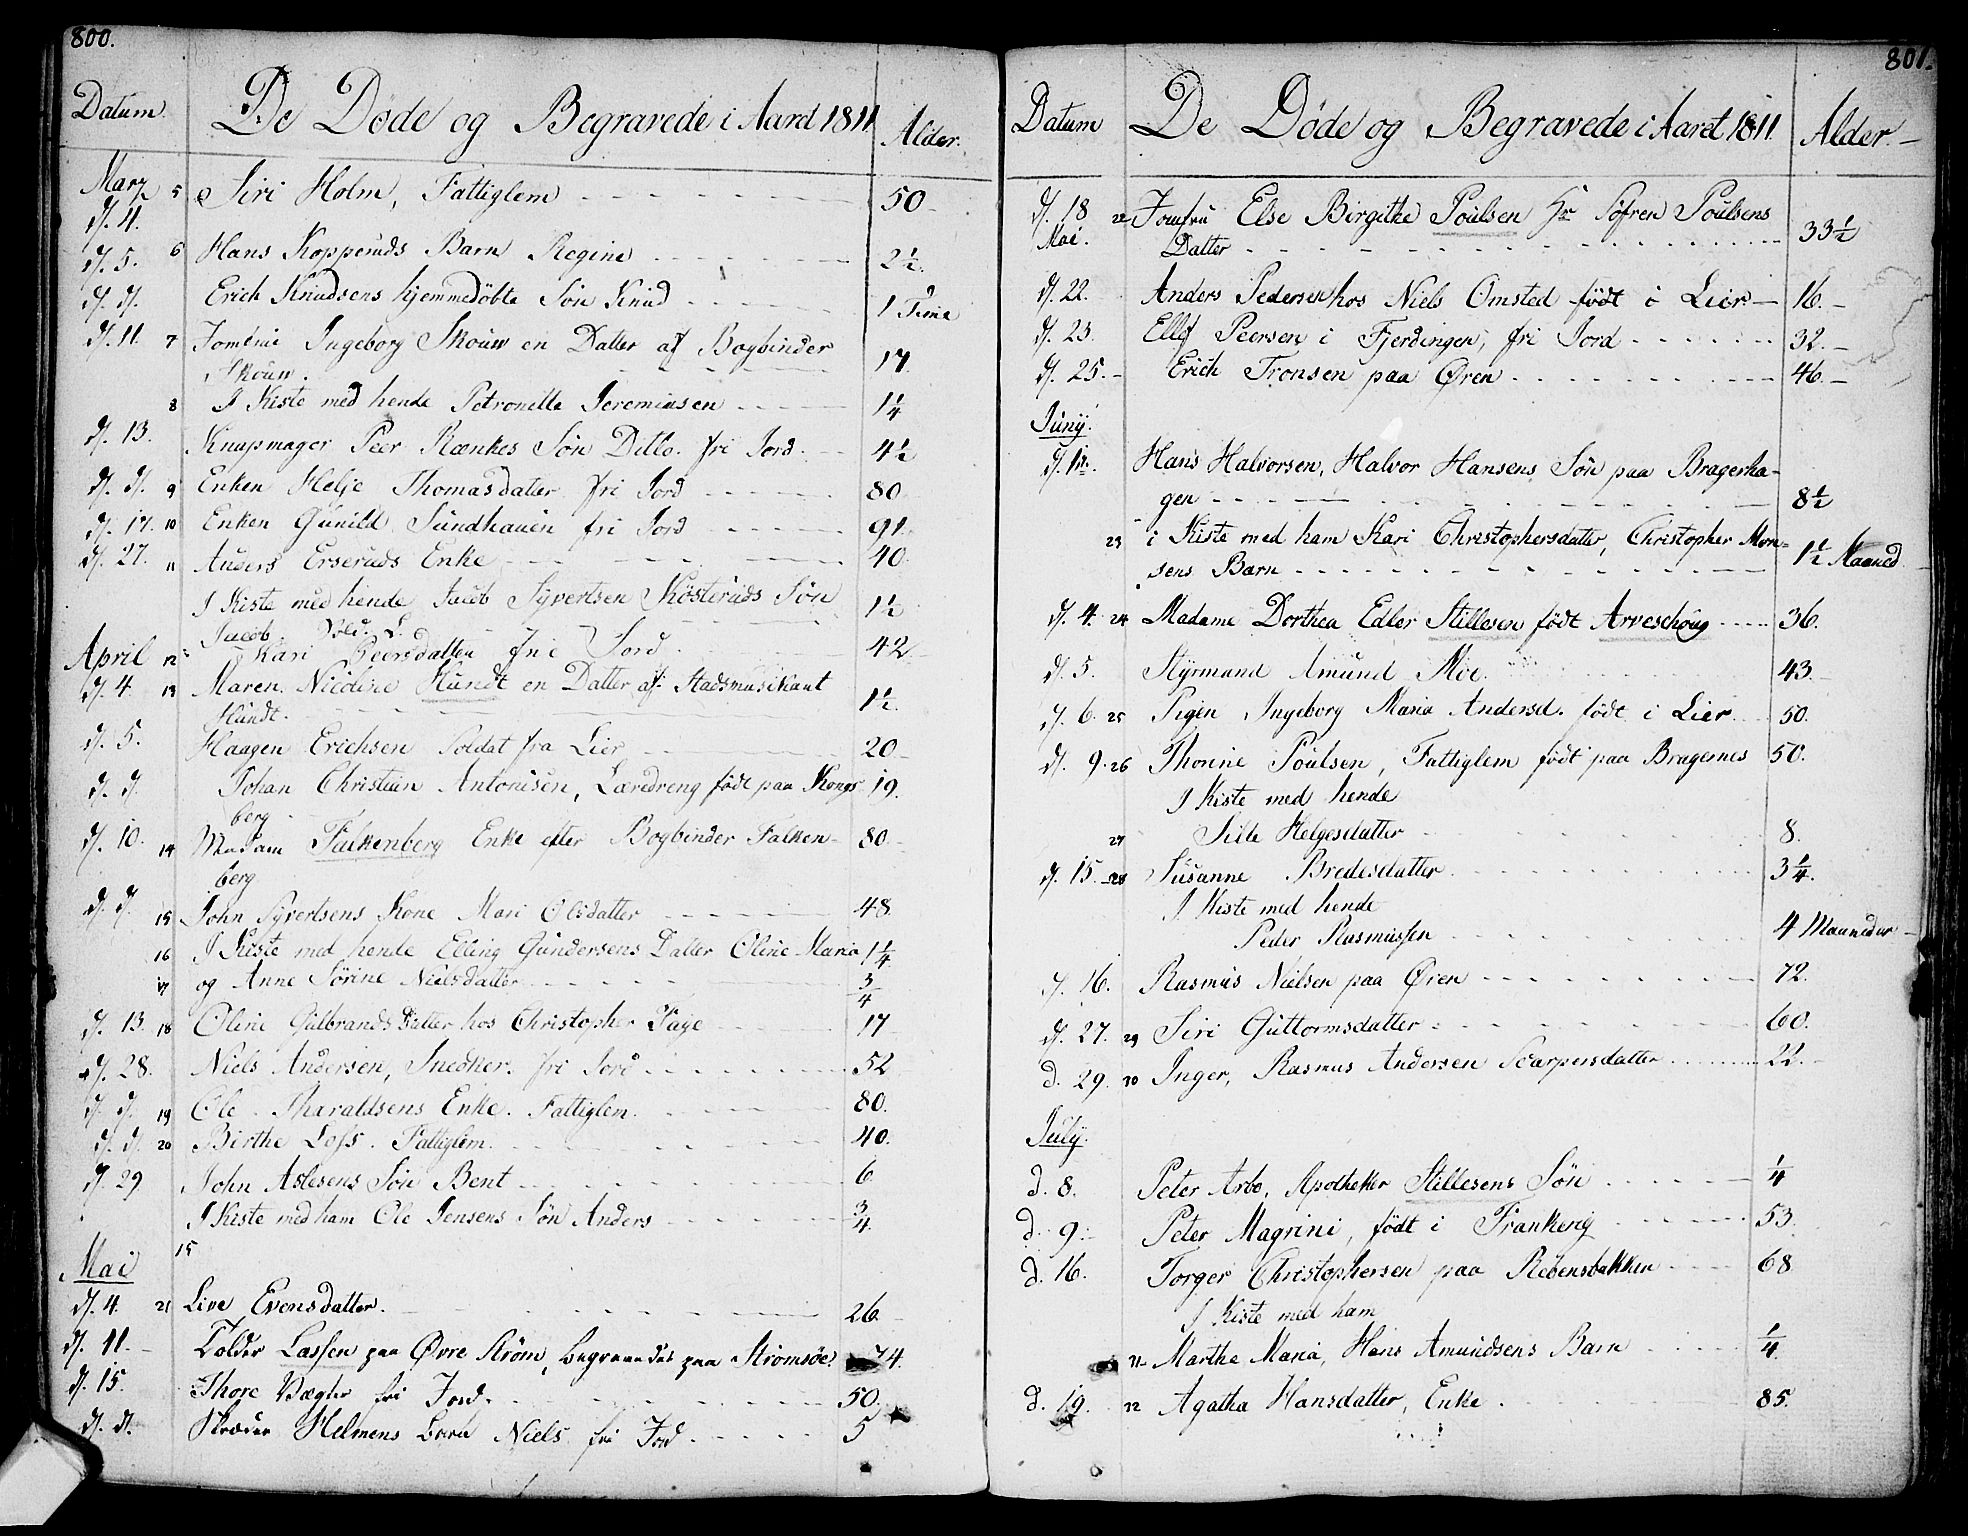 800.
Datum. De Døde og Begravede i Aaret 1811 Alder.
Marz 5 Siri Holm, Fattiglem 50
d. 4.
d. 5. 6 Hans Kopperuds Barn Regine 2½.
d. d. Erich Knudsens hjemmedøbte Søn Knud 1 Time
d. 11. 7 Jomfrue Ingeborg Skouw en Datter af Bogbinder
Skouw. 17
8 I Kiste med hende Petronelle Jeremiasen 1¼
d. 13. Knapmager Peer Rænkes Søn Ditlo. fri Jord. 4½
d. d. 9 Enken Helje Thomasdatter fri Jord 80
d. 17. 10 Enken Gunild Sundhauen fri Jord 91.
d. 27. 11 Anders Erseruds Enke 40.
I Kiste med hende Jacob Syvertsen Kosteruds Søn
Jacob. 1½
April 12 Kari Peersdatter frie Jord 42
d. 4 13 Maren Nicoline Hundt en Datter af Stadsmusikant
Hundt. 1½.
d. 5. Haagen Erichsen Soldat fra Lier 20
d. d. Johan Christian Antonisen, Læredreng født paa Kongs 19.
berg
d. 10. 14 Madam Falkenberg Enke efter Bogbinder Falken- 80
berg
d. d. 15 John Syvertsens Kone Mari Olsdatter 48.
16 I Kiste med hende Elling Gundersens Datter Oline Maria 1¼
17 og Anne Sørine Nielsdatter ¾
d. 13. 18 Oline Gulbrands Datter hos Christopher Faye 17
d. 28. Niels Andersen, Snedker. fri Jord 52
d. d. 19 Ole Tharaldsens Enke. Fattiglem. 80.
d. d. 20 Birthe Loss. Fattiglem. 40.
d. 29 John Aslesens Søn Bent 6.
I Kiste med ham Ole Jensens Søn Anders ¾
Mai 15
d. 4. 21 Live Evensdatter. 26.
d. 11. Tolder Lassen paa Øvre Strøm, begravedes paa Strømsøe 74.
d. 15. Thore Vægter fri Jord. 50.
d. d. Skræder Helmens Barn Niels fri Jord 5
801.
Datum De Døde og Begravede i Aaret 1811. Alder.
d. 18 22 Jomfru Else Birgithe Poulsen Hr Søfren Poulsens
Mai. Datter 33½
d. 22. Anders Pedersen hos Niels Omsted født i Lier 16.
d. 23. Ellef Peersen i Fjerdingen, fri Jord 32.
d. 25. Erich Tronsen paa Øren 46.
Juny.
d. 1. Hans Halvorsen, Halvor Hansens Søn paa Bragerha-
gen 8½
23 i Kiste med ham Kari Christophersdatter, Christopher Mon-
sens Barn 1½ Maaned
d. 4. 24 Madame Dorthea Edler Stillesen født Arveschoug 36.
d. 5. Styrmand Amund Moe. 43.
d. 6. 25 Pigen Ingeborg Maria Andersd. født i Lier 50.
d. 9. 26 Thorine Poulsen, Fattiglem født paa Bragernes 50.
I Kiste med hende
27 Sille Helgesdatter 8.
d. 15. 28 Susanne Bredesdatter 3¼.
I Kiste med hende
Peder Rasmussen 4 Maaneder
d. 16. Rasmus Nielsen paa Øren 72.
d. 27. 29 Siri Guttormsdatter 60.
d. 29. 30 Inger, Rasmus Andersen Scarpersdatter 22.
July.
d. 8. Peter Arbo, Apotheker Stillesens Søn ¼
d. 9. Peter Magrini, født i Frankerig 53.
d. 16. Torger Christophersen paa Rebensbakken 68
I Kiste med ham
31 Marthe Maria, Hans Amundsens Barn ¼.
d. 19. 32 Agatha Hansdatter, Enke 85.